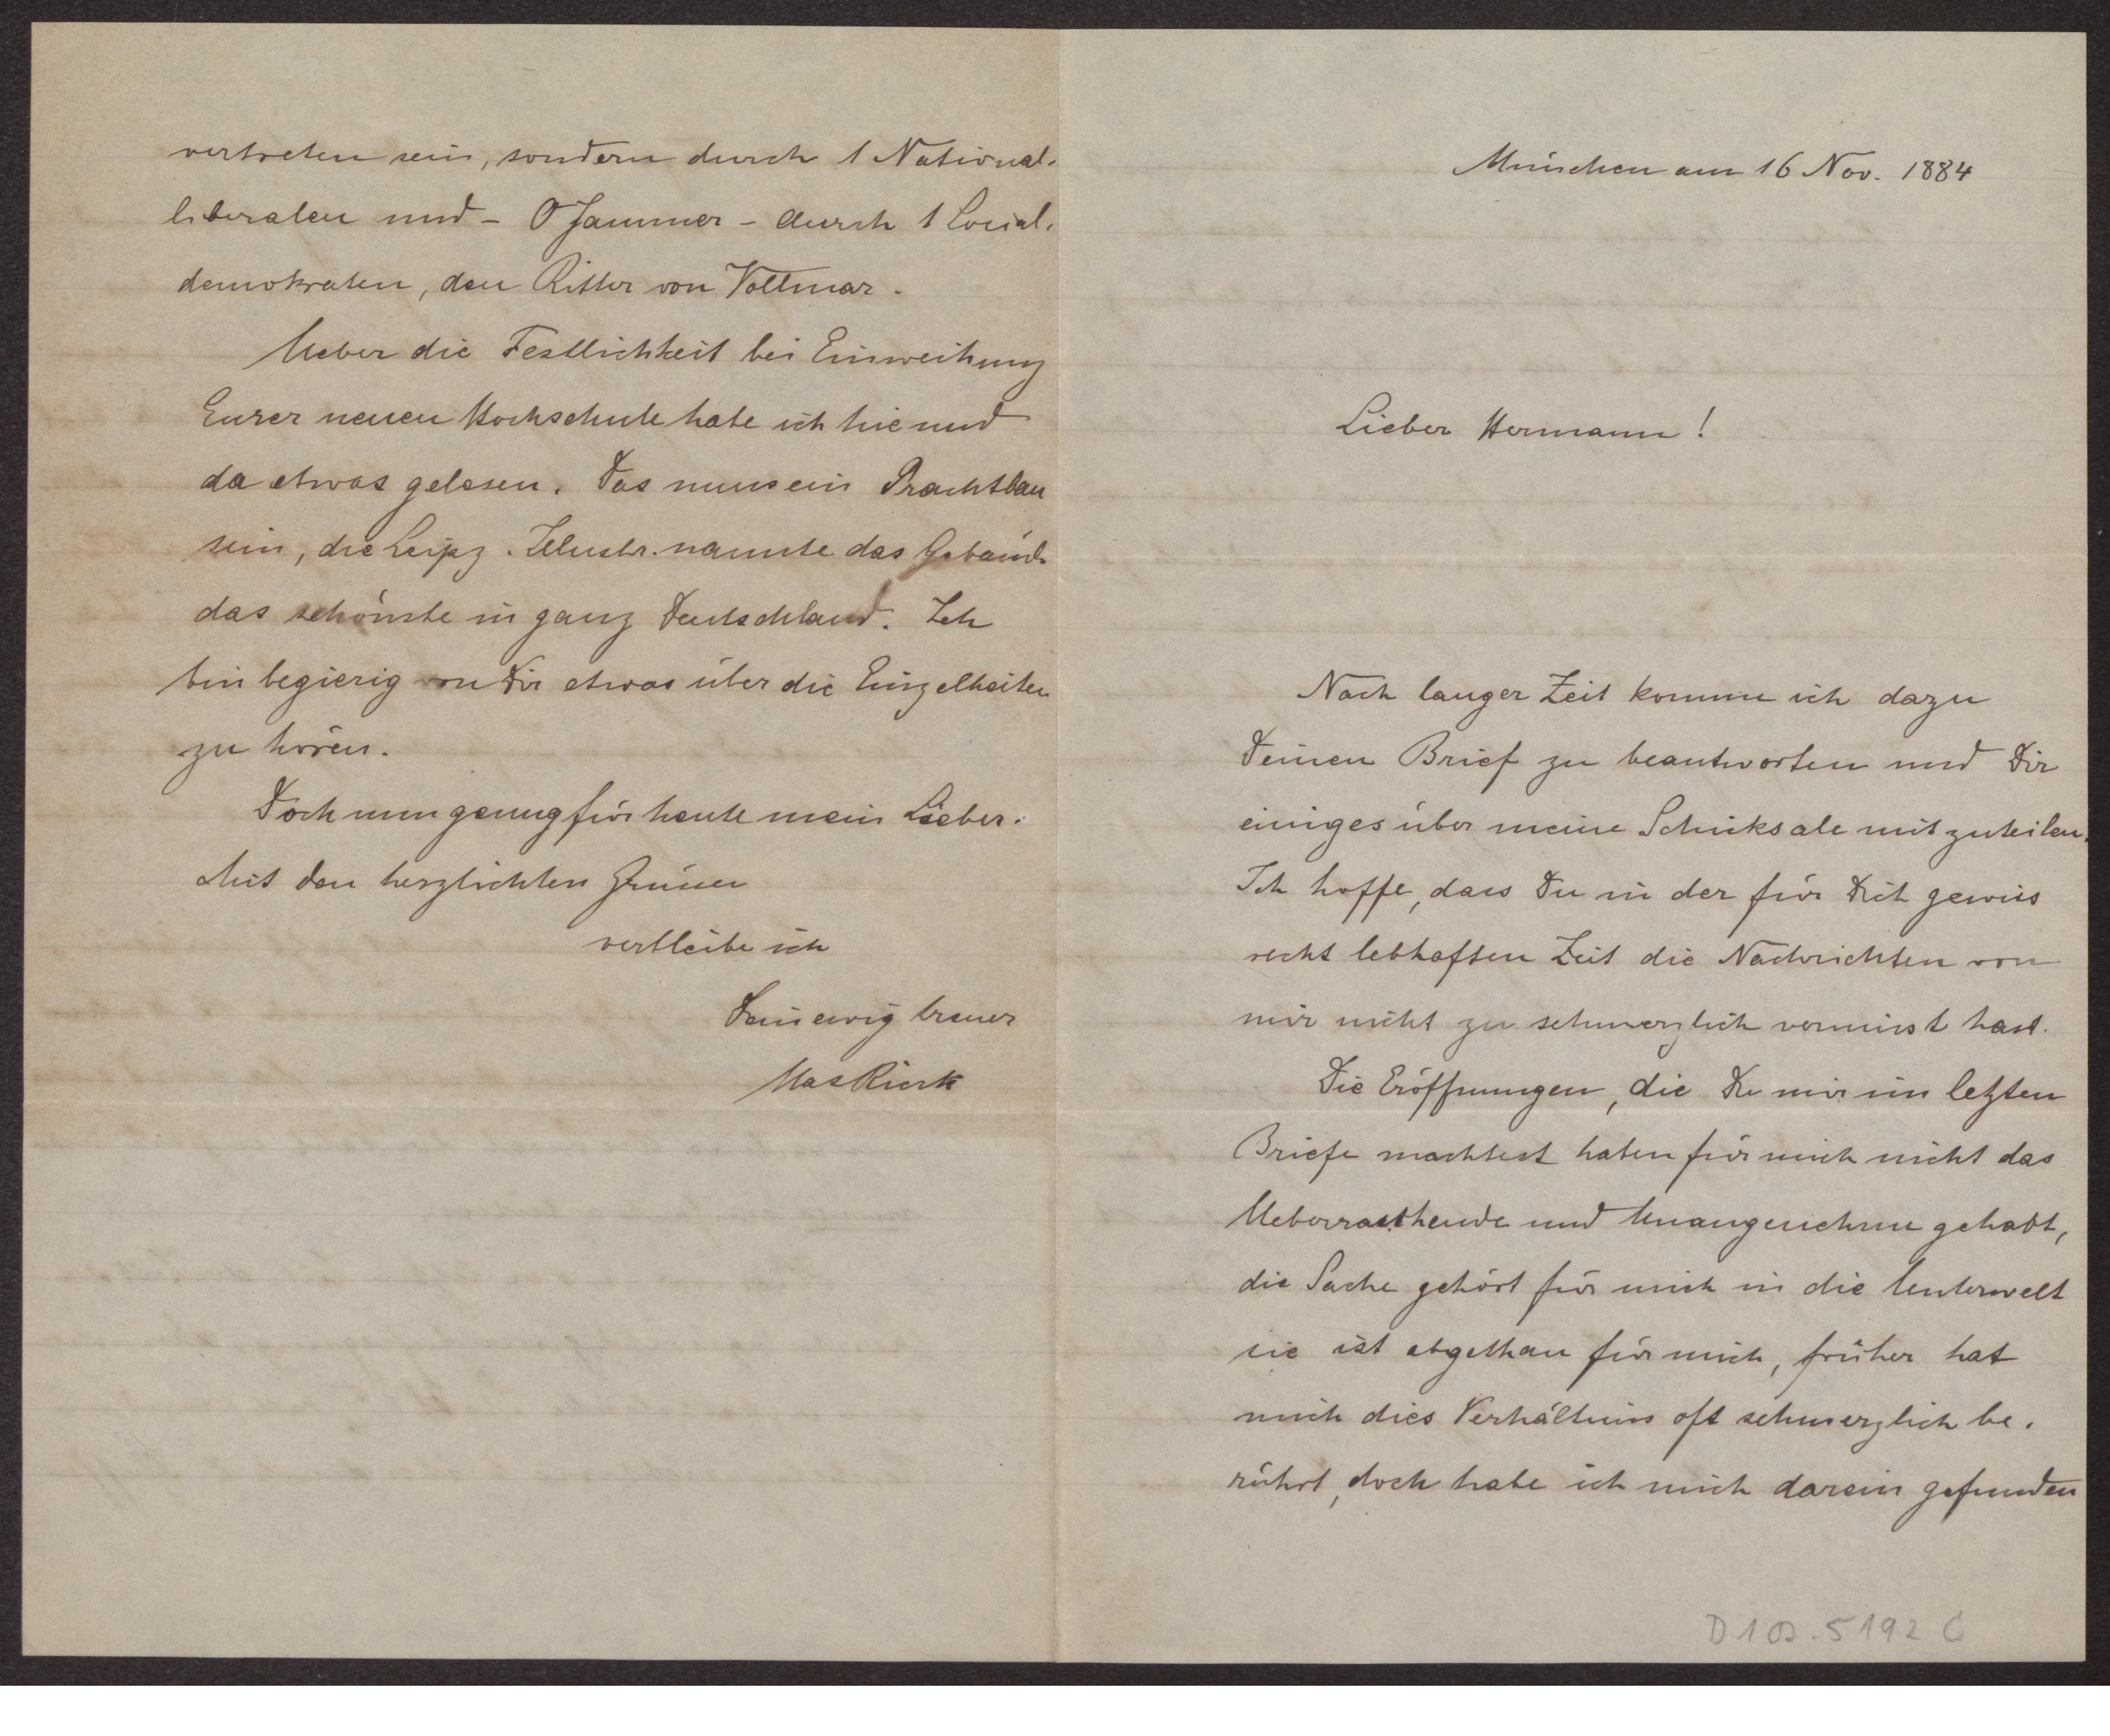 München am 16 Nov. 1884
Lieber Hermann!
Nach langer Zeit komme ich dazu
Deinen Brief zu beantworten und Dir
einiges über meine Schicksale mitzuteilen.
Ich hoffe, dass Du in der für Dich gewiss
recht lebhaften Zeit die Nachrichten von
mir nicht zu schmerzlich vermisst hast.
Die Eröffnungen, die Du mir im letzten
Briefe machtest haben für mich nicht das
Ueberraschende und Unangenehme gehabt,
die Sache gehört für mich in die Unterwelt
sie ist abgethan für mich, früher hat
mich dies Verhältniss oft schmerzlich be-
rührt, doch habe ich mich darein gefunden
D 102.5192 C
vertreten sein, sondern durch 1 National-
liberalen und - O Jammer - durch 1 Social-
demokraten, den Ritter von Vollmar.
Ueber die Festlichkeit bei Einweihung
Eurer neuen Hochschule habe ich hie und
da etwas gelesen. Das muss ein Prachtbau
sein, die Leipz. Illustr. nannte das Gebäude
das schönste in ganz Deutschland. Ich
bin begierig von Dir etwas über die Einzelheiten
zu hören.
Doch nun genug für heute mein Lieber.
Mit den herzlichsten Grüssen
verbleibe ich
Dein ewig treuer
Max